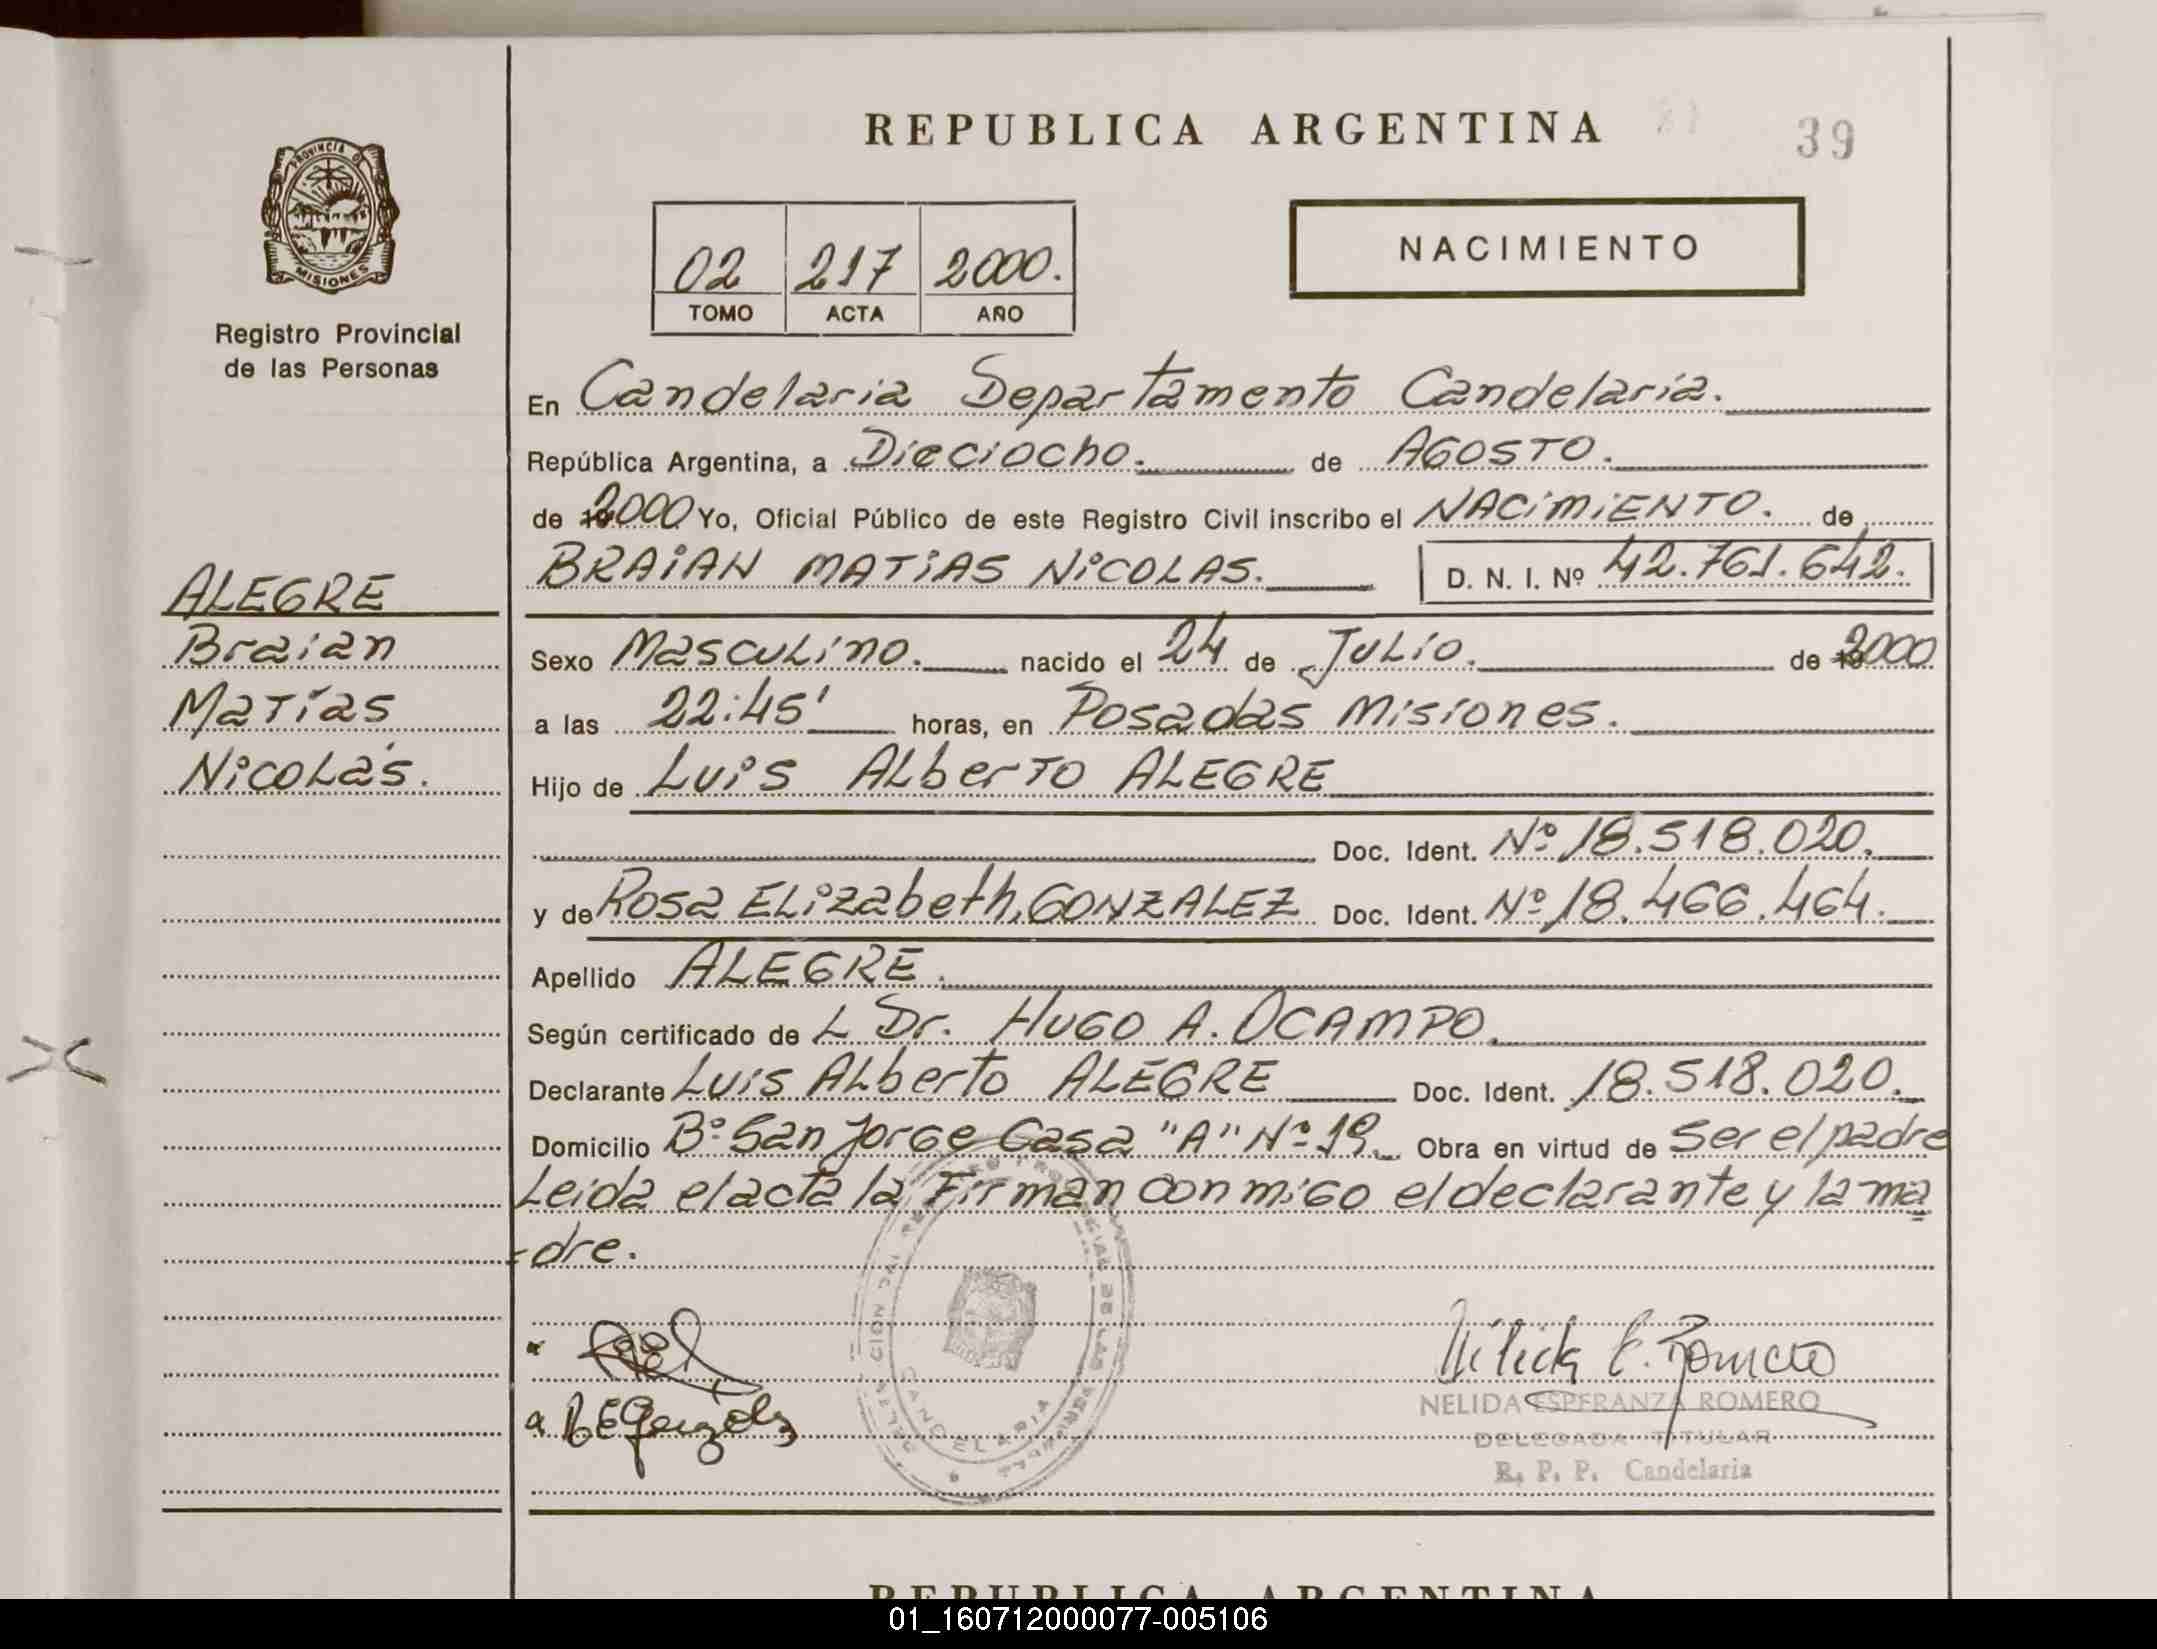 REPUBLICA ARGENTINA
39
PROVINCIA DE
MISIONES
Registro Provincial
de las Personas
02 217 2000.
TOMO ACTA AÑO
NACIMIENTO
En Candelaria Departamento Candelaria.
República Argentina, a Dieciocho. de AGOSTO.
de 2000 Yo, Oficial Público de este Registro Civil inscribo el NACIMIENTO. de
BRAIAN MATIAS NICOLAS. D. N. I. Nº 42.761.642.
ALEGRE
Braian
Matías
Nicolás.
Sexo Masculino. nacido el 24 de Julio. de 2000
a las 22:45' horas, en Posadas Misiones.
Hijo de Luis Alberto ALEGRE
Doc. Ident. Nº 18.518.020.
y de Rosa Elizabeth GONZALEZ Doc. Ident. Nº 18.466.464.
Apellido ALEGRE.
Según certificado de L Dr. HUGO A. OCAMPO.
Declarante Luis Alberto ALEGRE Doc. Ident. 18.518.020.
Domicilio Bº San Jorge Casa "A" Nº 19. Obra en virtud de ser el padre
Leida el acta la Firman conmigo el declarante y la ma
-dre.
CANDELARIA
Nélida E. Romero
NELIDA ESPERANZA ROMERO
DELEGADA TITULAR
R. P. P. Candelaria
REPUBLICA ARGENTINA
01_160712000077-005106